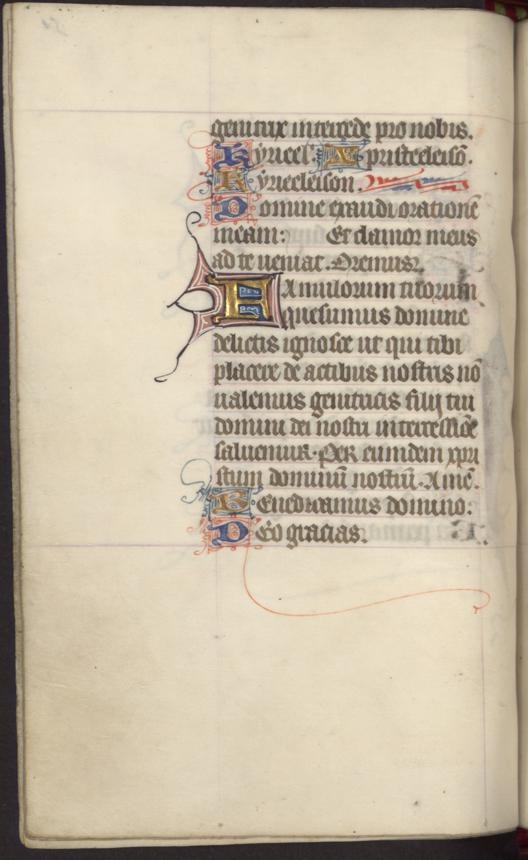 genitrix intercede pro nobis.
Kyrieel. Xpristeeleisō.
Kyrieeleison.
Domine exaudi orationē
meam: Et clamor meus
ad te ueniat. Oremus.
Famulorum tuorum
quesumus domine
delictis ignosce ut qui tibi
placere de actibus nostris nō
ualemus genitricis filij tui
domini dei nostri intercessiōe
saluemur. Per eumdem xpri
stum dominū nostrū. Amē.
Benedicamus domino.
Deo gracias.